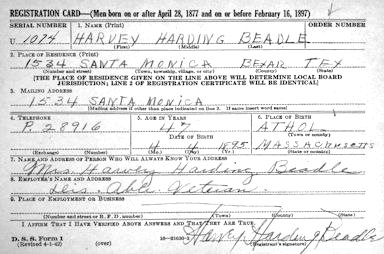 REGISTRATION CARD—(Men born on or after April 28, 1877 and on or before February 16, 1897)
SERIAL NUMBER 1. NAME (Print) ORDER NUMBER
U 1074 HARVEY HARDING BEADLE
(First) (Middle) (Last)
2. PLACE OF RESIDENCE (Print)
1534 SANTA MONICA BEXAR TEX
(Number and street) (Town, township, village, or city) (County) (State)
[THE PLACE OF RESIDENCE GIVEN ON THE LINE ABOVE WILL DETERMINE LOCAL BOARD JURISDICTION; LINE 2 OF REGISTRATION CERTIFICATE WILL BE IDENTICAL]
3. MAILING ADDRESS
1534 SANTA MONICA
(Mailing address if other than place indicated on line 2. If same insert word same)
4. TELEPHONE 5. AGE IN YEARS 6. PLACE OF BIRTH
P. 28916 47 ATHOL
DATE OF BIRTH (Town or county)
1895 MASSACHUSETTS
(Exchange) (Number) (Mo.) (Day) (Yr.) (State or country)
7. NAME AND ADDRESS OF PERSON WHO WILL ALWAYS KNOW YOUR ADDRESS
Mrs. Harvey Harding Beadle
8. EMPLOYER'S NAME AND ADDRESS
Dis. Veteran
9. PLACE OF EMPLOYMENT OR BUSINESS
(Number and street or R. F. D. number) (Town) (County) (State)
I AFFIRM THAT I HAVE VERIFIED ABOVE ANSWERS AND THAT THEY ARE TRUE.
Harvey Harding Beadle
D. S. S. Form 1 (Registrant's signature)
(Revised 4-1-42) (over)